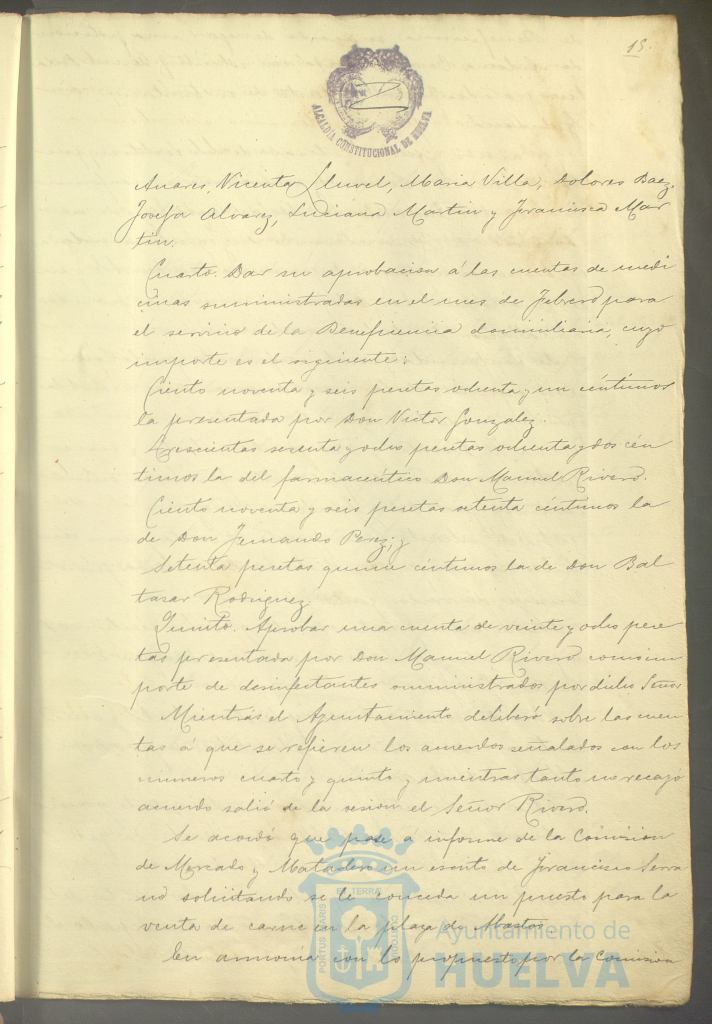 15.
ALCALDIA CONSTITUCIONAL DE HUELVA
Anares, Vicenta Lluvel, Maria Villa, Dolores Baez,
Josefa Alvarez, Luciana Martin y Francisca Mar
tin.
Cuarto. Dar su aprobacion á las cuentas de medi
cinas suministradas en el mes de Febrero para
el servicio de la Beneficencia domiciliaria, cuyo
importe es el siguiente:
Ciento noventa y seis pesetas ochenta y un céntimos
la presentada por Don Victor Gonzalez.
Trescientas sesenta y ocho pesetas ochenta y dos cén
timos la del farmacéutico Don Manuel Rivero.
Ciento noventa y seis pesetas setenta céntimos la
de Don Fernando Perez; y
Setenta pesetas quince céntimos la de Don Bal
tasar Rodriguez.
Quinto. Aprobar una cuenta de veinte y ocho pese
tas presentada por Don Manuel Rivero como im
porte de desinfectantes suministrados por dicho Señor
Mientras el Ayuntamiento deliberó sobre las cuen
tas á que se refieren los acuerdos señalados con los
numeros cuarto y quinto y mientras tanto no recayó
acuerdo salió de la sesion el Señor Rivero.
Se acordó que pase a informe de la Comision
de Mercado y Matadero un escrito de Francisco Serra
no solicitando se le conceda un puesto para la
venta de carne en la plaza de Abastos
En armonia con lo propuesto por la Comision
PORTUS MARIS ET TERRAE CUSTODIA
Ayuntamiento de
HUELVA